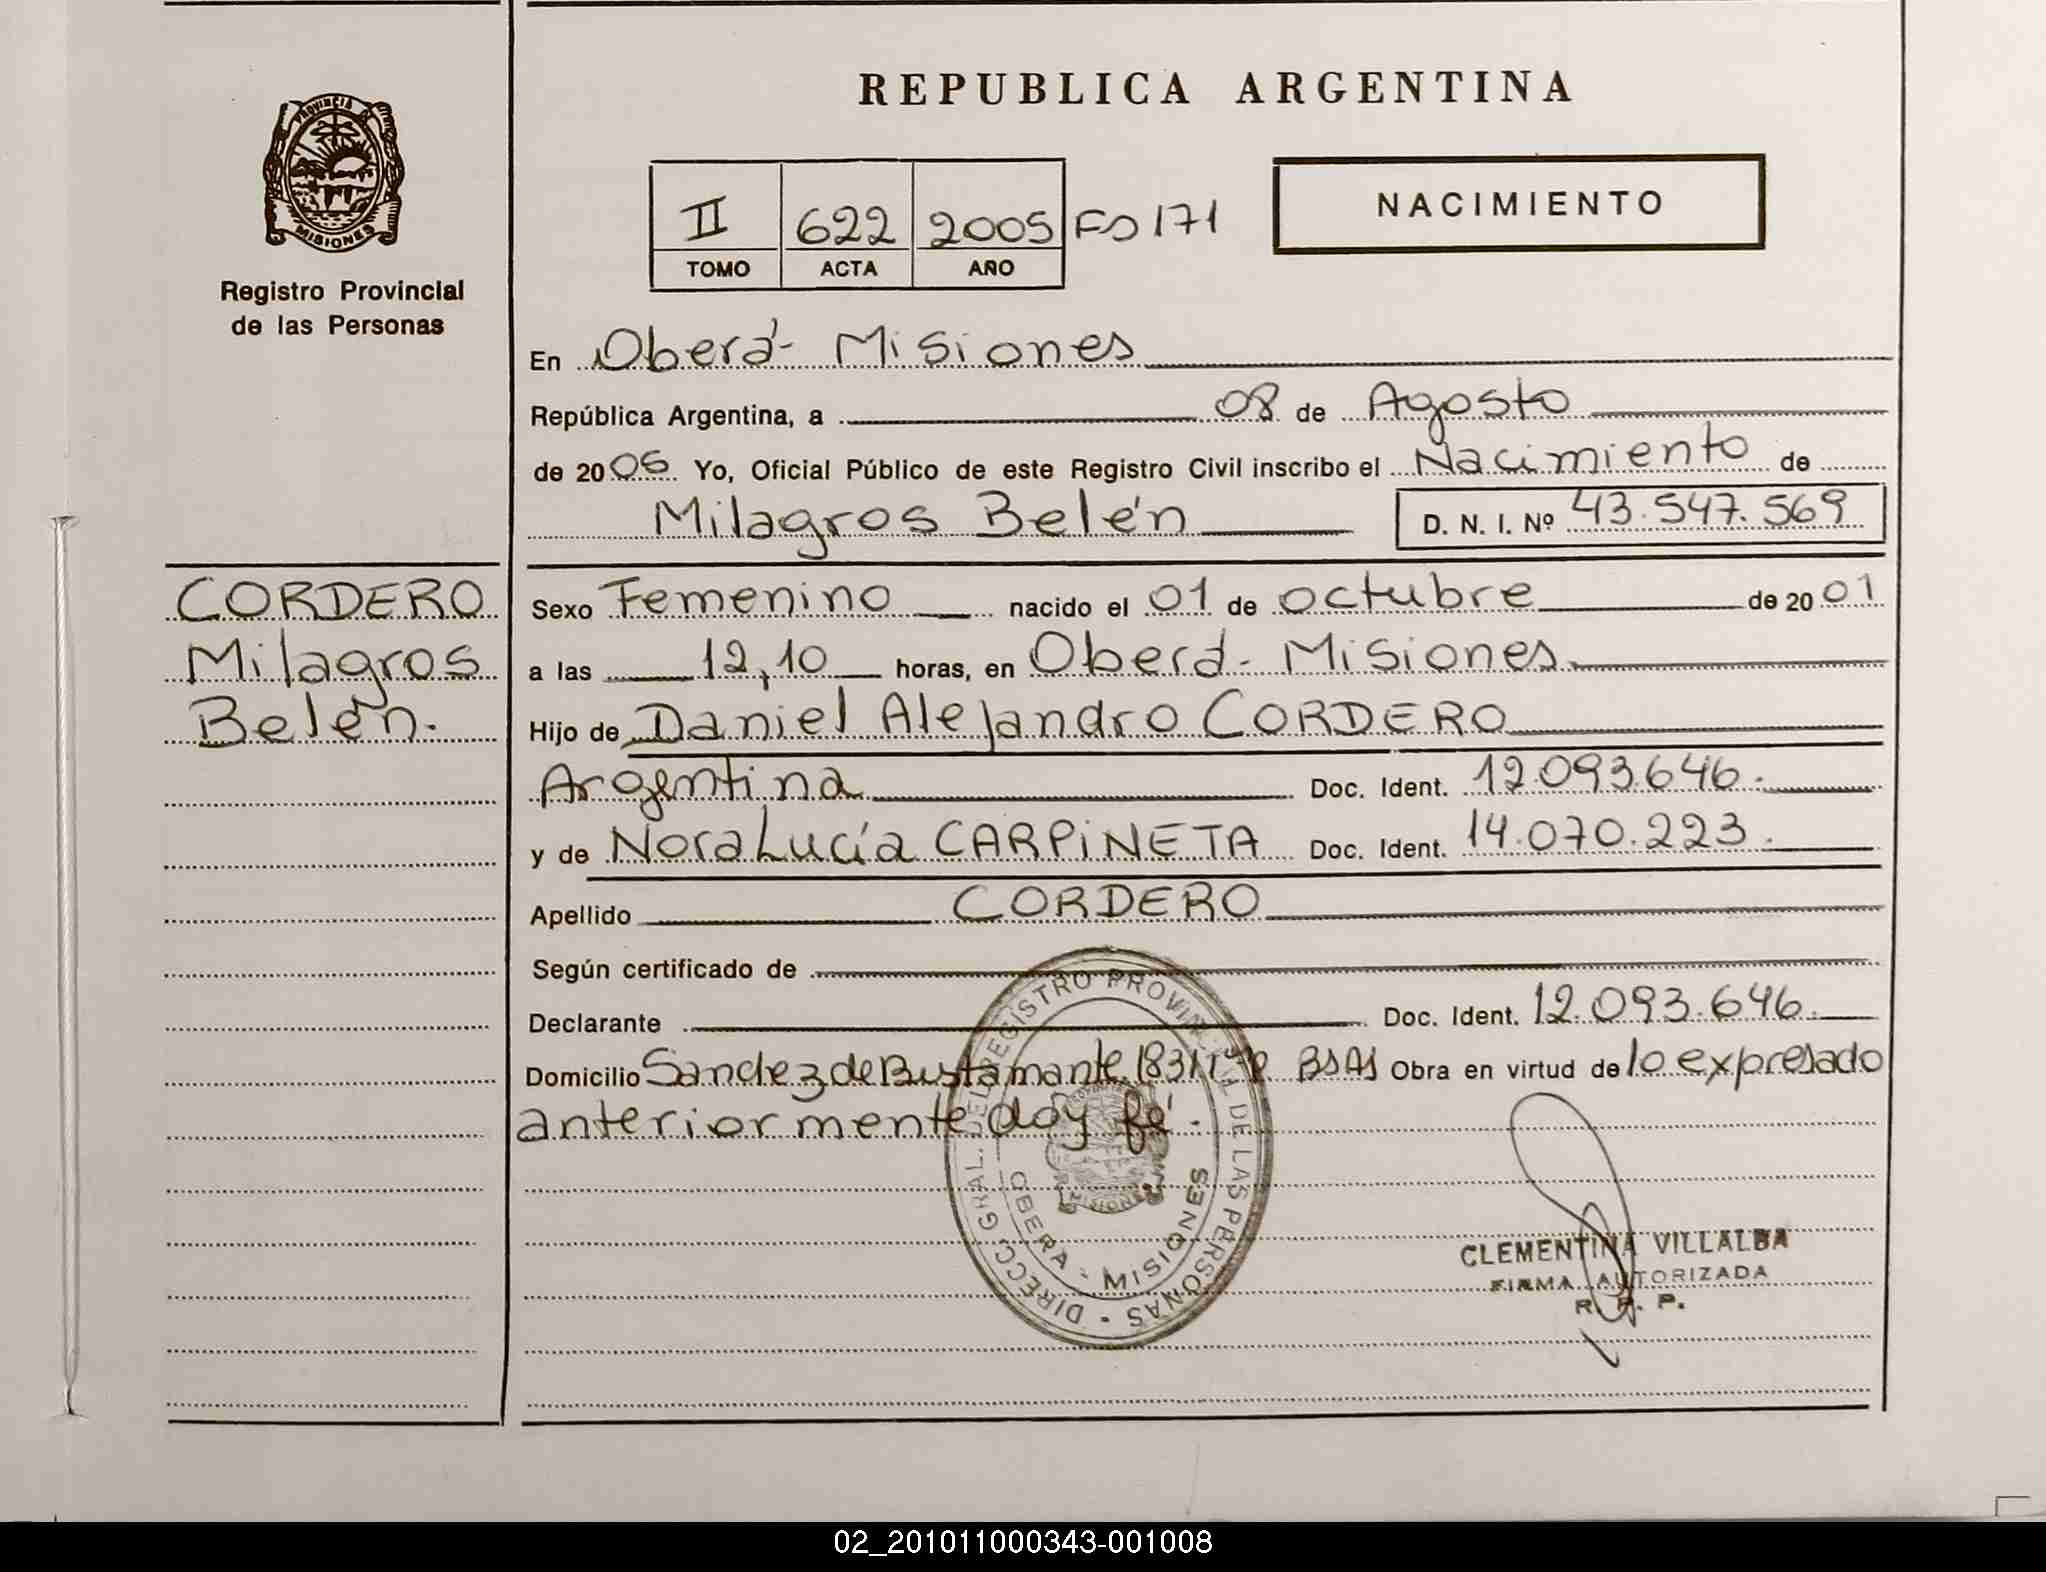 REPUBLICA ARGENTINA
PROVINCIA
MISIONES
Registro Provincial
de las Personas
II 622 2005 Fo 171
TOMO ACTA AÑO
NACIMIENTO
En Oberá - Misiones
República Argentina, a 08 de Agosto
de 2005 Yo, Oficial Público de este Registro Civil inscribo el Nacimiento de
Milagros Belén D. N. I. Nº 43.547.569
CORDERO
Milagros
Belén.
Sexo Femenino nacido el 01 de octubre de 2001
a las 12,10 horas, en Oberá - Misiones
Hijo de Daniel Alejandro CORDERO
Argentina Doc. Ident. 12.093.646.
y de Nora Lucía CARPiNETA Doc. Ident. 14.070.223.
Apellido CORDERO
Según certificado de
Declarante Doc. Ident. 12.093.646.
Domicilio Sanchez de Bustamante 1831 BsAs Obra en virtud de lo expresado
anteriormente doy fé.
DIRECC. GRAL. DEL REGISTRO PROVINCIAL DE LAS PERSONAS
OBERA - MISIONES
CLEMENTINA VILLALBA
FIRMA AUTORIZADA
R. P. P.
02_201011000343-001008